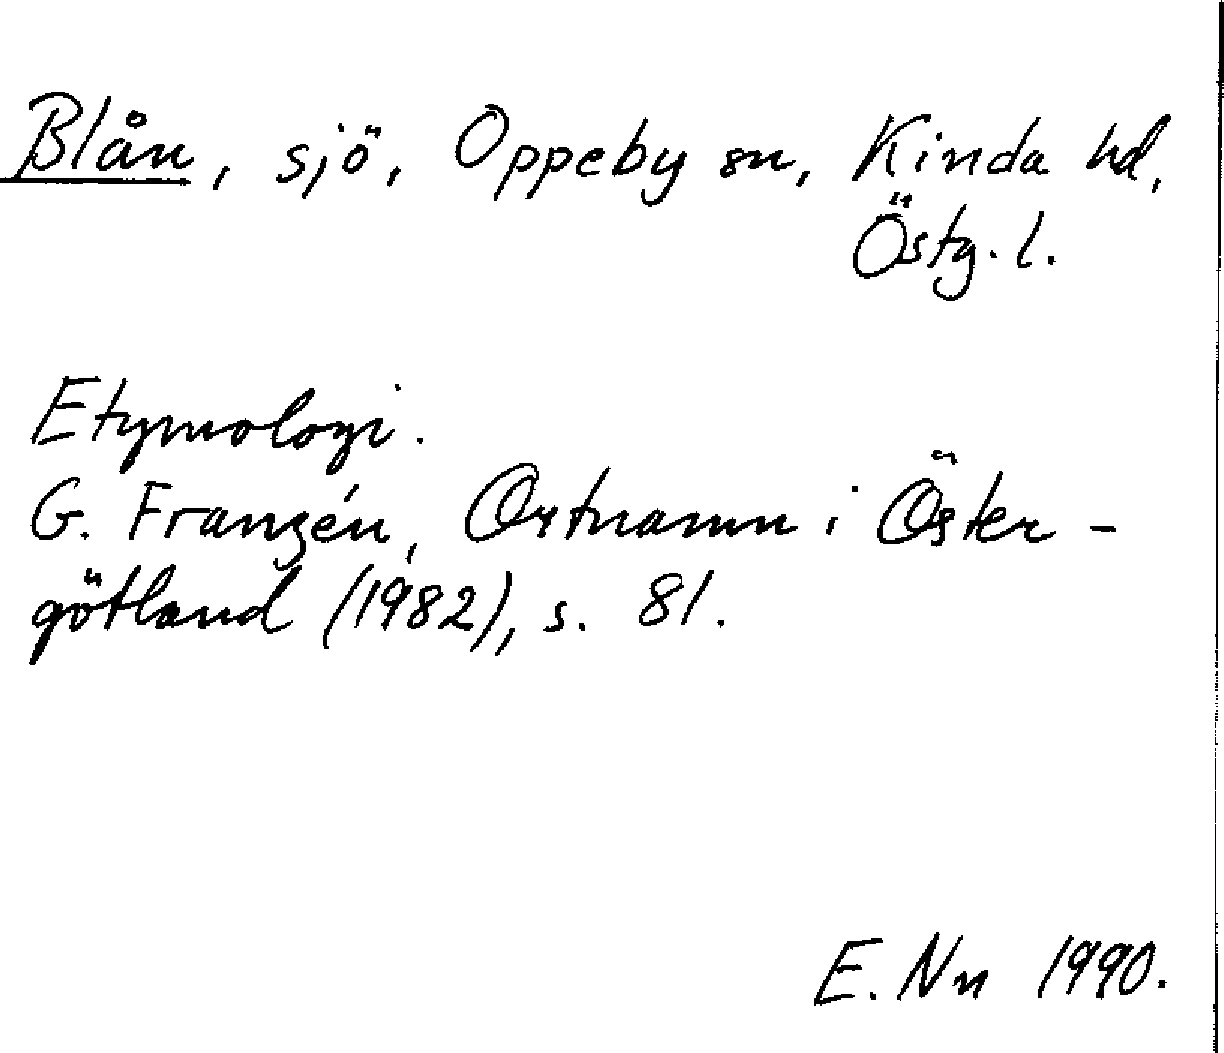 Blån, sjö, Oppeby sn, Kinda hd,
Östg. l.
Etymologi.
G. Franzén, Ortnamn i Öster-
götland (1982), s. 81.
E. Nn 1990.